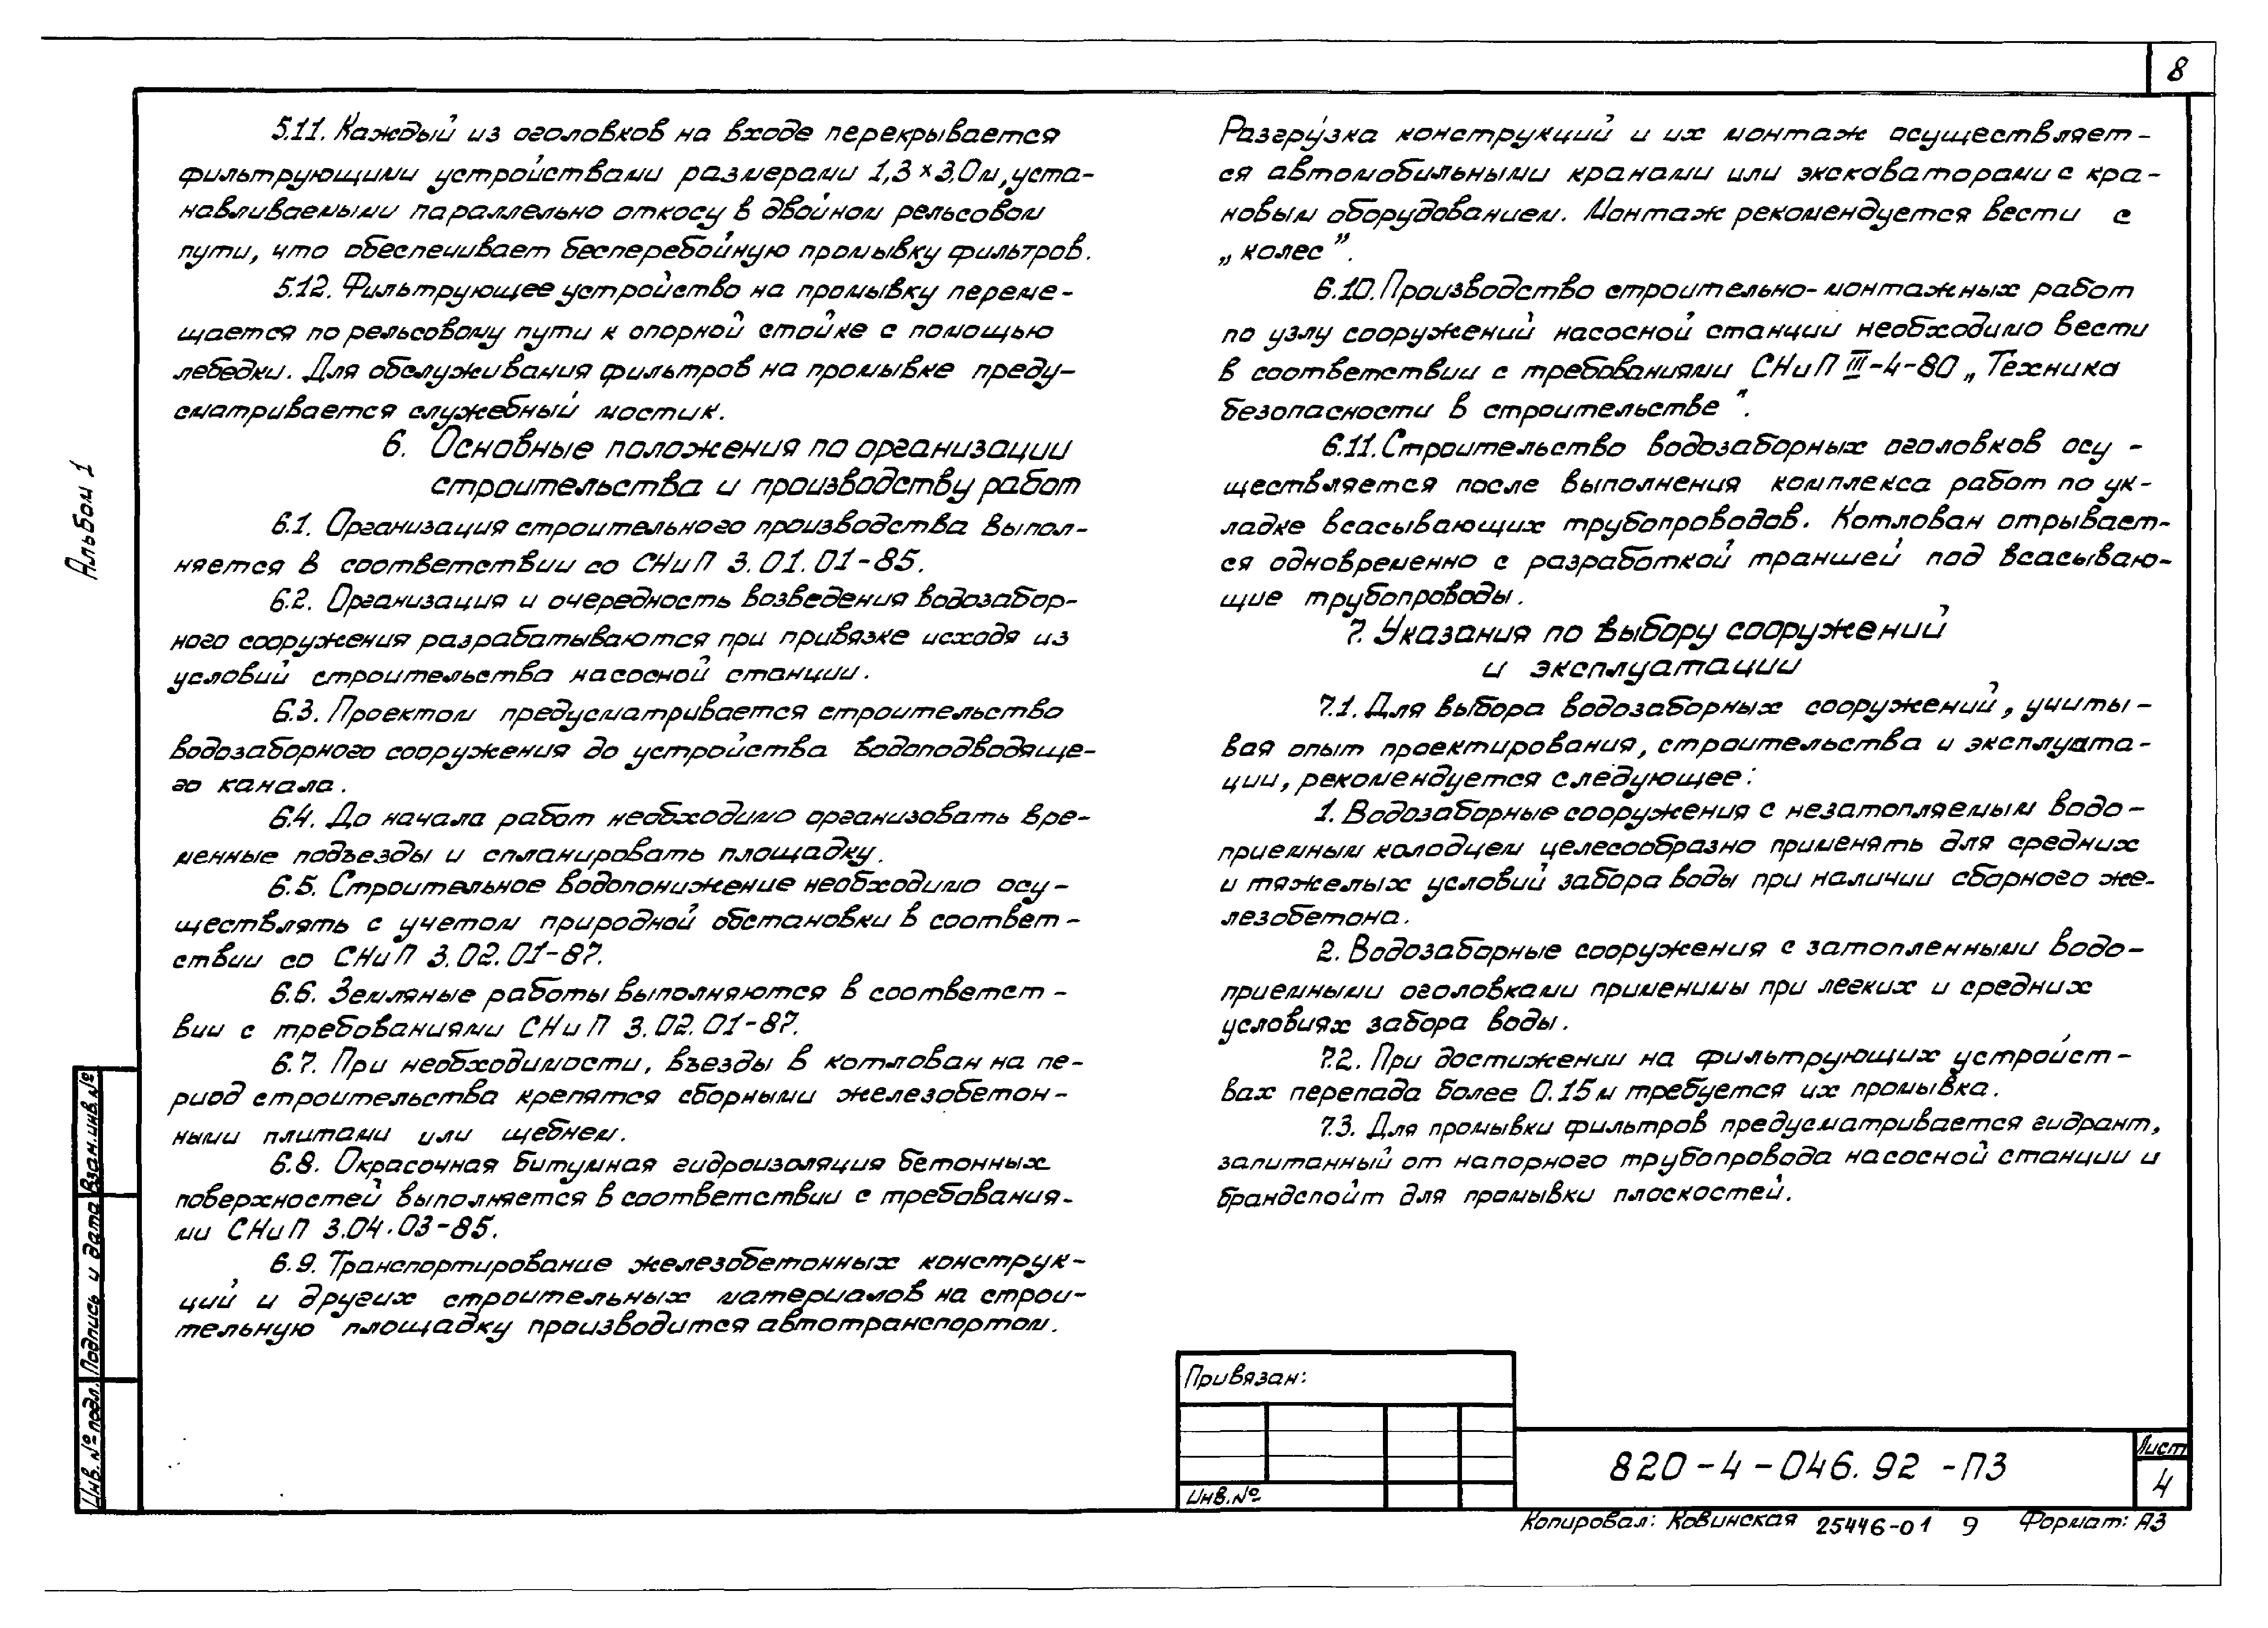 8
5.11. Каждый из оголовков на входе перекрывается
фильтрующими устройствами размерами 1,3×3,0м, уста-
навливаемыми параллельно откосу в двойном рельсовом
пути, что обеспечивает бесперебойную промывку фильтров.
5.12. Фильтрующее устройство на промывку переме-
щается по рельсовому пути к опорной стойке с помощью
лебедки. Для обслуживания фильтров на промывке преду-
сматривается служебный мостик.
6. Основные положения по организации
строительства и производству работ
6.1. Организация строительного производства выпол-
няется в соответствии со СНиП 3.01.01-85.
6.2. Организация и очередность возведения водозабор-
ного сооружения разрабатываются при привязке исходя из
условий строительства насосной станции.
6.3. Проектом предусматривается строительство
водозаборного сооружения до устройства водоподводяще-
го канала.
6.4. До начала работ необходимо организовать вре-
менные подъезды и спланировать площадку.
6.5. Строительное водопонижение необходимо осу-
ществлять с учетом природной обстановки в соответ-
ствии со СНиП 3.02.01-87.
6.6. Земляные работы выполняются в соответст-
вии с требованиями СНиП 3.02.01-87.
6.7. При необходимости, въезды в котлован на пе-
риод строительства крепятся сборными железобетон-
ными плитами или щебнем.
6.8. Окрасочная битумная гидроизоляция бетонных
поверхностей выполняется в соответствии с требования-
ми СНиП 3.04.03-85.
6.9. Транспортирование железобетонных конструк-
ций и других строительных материалов на строи-
тельную площадку производится автотранспортом.
Разгрузка конструкций и их монтаж осуществляет-
ся автомобильными кранами или экскаваторами с кра-
новым оборудованием. Монтаж рекомендуется вести с
„колес”.
6.10. Производство строительно-монтажных работ
по узлу сооружений насосной станции необходимо вести
в соответствии с требованиями СНиП III-4-80 „Техника
безопасности в строительстве”.
6.11. Строительство водозаборных оголовков осу-
ществляется после выполнения комплекса работ по ук-
ладке всасывающих трубопроводов. Котлован отрывает-
ся одновременно с разработкой траншей под всасываю-
щие трубопроводы.
7. Указания по выбору сооружений
и эксплуатации
7.1. Для выбора водозаборных сооружений, учиты-
вая опыт проектирования, строительства и эксплуата-
ции, рекомендуется следующее:
1. Водозаборные сооружения с незатопляемым водо-
приемным колодцем целесообразно применять для средних
и тяжелых условий забора воды при наличии сборного же-
лезобетона.
2. Водозаборные сооружения с затопленными водо-
приемными оголовками применимы при легких и средних
условиях забора воды.
7.2. При достижении на фильтрующих устройст-
вах перепада более 0.15м требуется их промывка.
7.3. Для промывки фильтров предусматривается гидрант,
запитанный от напорного трубопровода насосной станции и
брандспойт для промывки плоскостей.
Альбом 1
Взам.инв.№
Подпись и дата
Инв.№ подл.
Привязан:
Инв.№
820-4-046.92 -ПЗ
Лист
4
Копировал: Ковинская 25446-01 9 Формат: А3